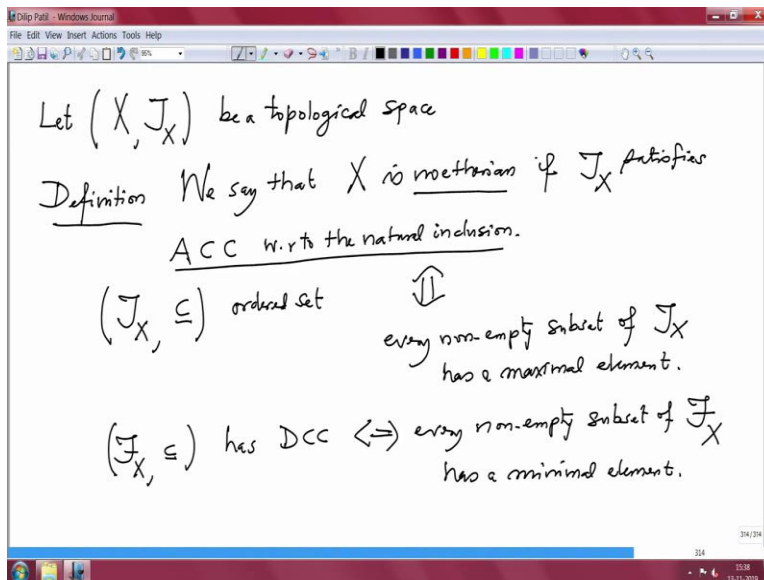 Dilip Patil - Windows Journal
File Edit View Insert Actions Tools Help
95%
Let (X, 𝒯_X) be a topological space
Definition We say that X is noetherian if 𝒯_X satisfies
ACC w.r to the natural inclusion.
(𝒯_X, ⊆) ordered set
⇕
every non-empty subset of 𝒯_X
has a maximal element.
(ℱ_X, ⊆) has DCC ⟺ every non-empty subset of ℱ_X
has a minimal element.
314/314
314
15:38
13-11-2019